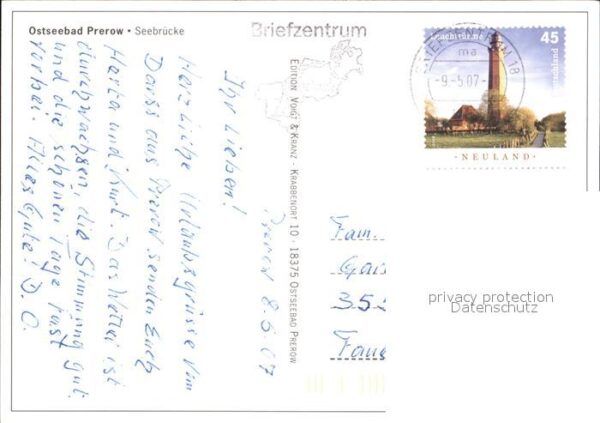 Ostseebad Prerow • Seebrücke
Briefzentrum
BRIEFZENTRUM 18
ma
-9.-5.07-
Leuchttürme
45
Deutschland
· NEULAND ·
EDITION VOIGT & KRANZ · KRABBENORT 10 · 18375 OSTSEEBAD PREROW
Prerow 8.5.07
Ihr Lieben!
Herzliche Urlaubsgrüsse vom
Darss aus Prerow senden Euch
Herta und Kurt. Das Wetter ist
durchwachsen, die Stimmung gut.
und die schönen Tage fast
vorbei. Alles Gute! D. O.
Fam.
Gais
352
privacy protection
Datenschutz